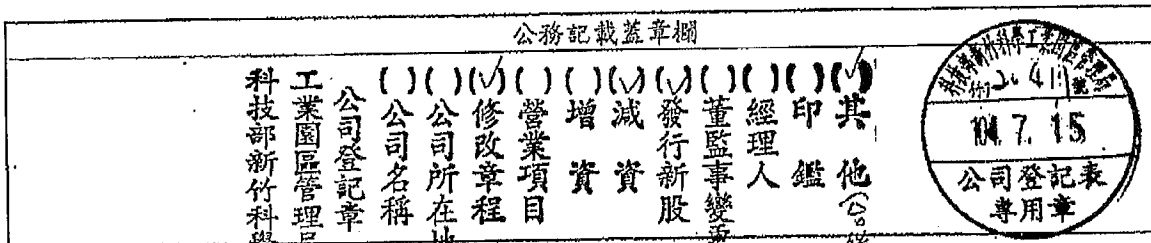 公務記載蓋章欄
(✓)其他
( )印鑑
( )經理人
( )董監事變
(✓)發行新股
(✓)減資
( )增資
( )營業項目
(✓)修改章程
( )公司所在
( )公司名稱
公司登記章
工業園區管理
科技部新竹科學
科技部新竹科學工業園區管理局
104. 7. 15
公司登記表
專用章